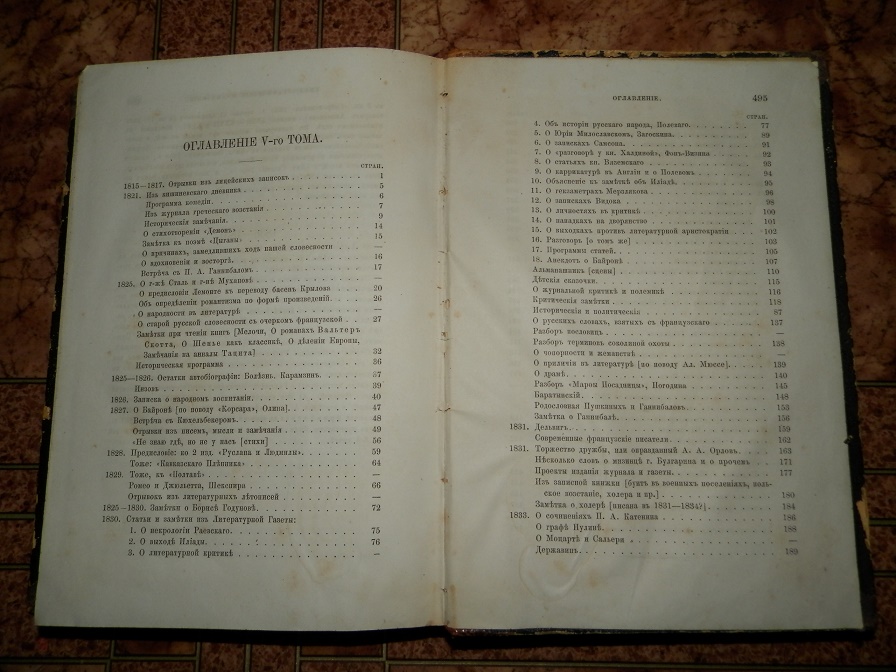 ОГЛАВЛЕНІЕ V-го ТОМА.
СТРАН.
1815—1817. Отрывки изъ лицейскихъ записокъ 1
1821. Изъ кишиневскаго дневника 5
Программа комедіи. 6
Изъ журнала греческаго возстанія 7
Историческія замѣчанія. 9
О стихотвореніи «Демонъ» 14
Замѣтка къ поэмѣ «Цыганы» 15
О причинахъ, замедлившихъ ходъ нашей словесности —
О вдохновеніи и восторгѣ. 16
Встрѣча съ П. А. Ганнибаломъ 17
1825. О г-жѣ Сталь и г-нѣ Мухановѣ —
О предисловіи Лемонте къ переводу басенъ Крылова 20
Объ опредѣленіи романтизма по формѣ произведеній. 26
О народности въ литературѣ —
О старой русской словесности съ очеркомъ французской 27
Замѣтки при чтеніи книгъ [Мелочи, О романахъ Вальтеръ
Скотта, О Шенье какъ классикѣ, О дѣленіи Европы,
Замѣчанія на анналы Тацита] 32
Историческая программа 36
1825—1826. Остатки автобіографіи: Болѣзнь. Карамзинъ. 37
Изгнаніе 39
1826. Записка о народномъ воспитаніи 40
1827. О Байронѣ [по поводу «Корсара», Олина]. 47
Встрѣча съ Кюхельбекеромъ. 48
Отрывки изъ писемъ, мысли и замѣчанія 49
«Не знаю гдѣ, но не у насъ [стихи] 56
1828. Предисловіе: ко 2 изд. «Руслана и Людмилы» 59
Тоже: «Кавказскаго Плѣнника» 64
1829. Тоже, къ «Полтавѣ» —
Ромео и Джюльетта, Шекспира 66
Отрывокъ изъ литературныхъ лѣтописей —
1825—1830. Замѣтки о Борисѣ Годуновѣ. 72
1830. Статьи и замѣтки изъ Литературной Газеты:
1. О некрологіи Раевскаго 75
2. О выходѣ Иліады. 76
3. О литературной критикѣ —
ОГЛАВЛЕНІЕ. 495
СТРАН.
4. Объ исторіи русскаго народа, Полеваго. 77
5. О Юріи Милославскомъ, Загоскина. 89
6. О запискахъ Самсона. 91
7. О «разговорѣ у кн. Халдиной», Фонъ-Визина 92
8. О статьяхъ кн. Вяземскаго 93
9. О каррикатурѣ въ Англіи и о Полевомъ 94
10. Объясненіе къ замѣткѣ объ Иліадѣ. 95
11. О гекзаметрахъ Мерзлякова 96
12. О запискахъ Видока 98
13. О личностяхъ въ критикѣ 100
14. О нападкахъ на дворянство 101
15. О выходкахъ противъ литературной аристократіи 102
16. Разговоръ [о томъ же] 103
17. Программы статей. 105
18. Анекдотъ о Байронѣ 107
Альманашникъ [сцены] 110
Дѣтскія сказочки. 115
О журнальной критикѣ и полемикѣ 116
Критическія замѣтки 118
Историческія и политическія 87
О русскихъ словахъ, взятыхъ съ французскаго 137
Разборъ пословицъ —
Разборъ терминовъ соколиной охоты 138
О чопорности и жеманствѣ —
О приличіи въ литературѣ [по поводу Ал. Мюссе]. 139
О драмѣ. 140
Разборъ «Марѳы Посадницы», Погодина 145
Баратинскій 148
Родословная Пушкиныхъ и Ганнибаловъ 153
Замѣтка о Ганнибалѣ. 156
1831. Дельвигъ 159
Современные французскіе писатели. 162
1831. Торжество дружбы, или оправданный А. А. Орловъ. 163
Нѣсколько словъ о мизинцѣ г. Булгарина и о прочемъ 171
Проекты изданія журнала и газеты. 177
Изъ записной книжки [бунтъ въ военныхъ поселеніяхъ, поль-
ское возстаніе, холера и пр.] 180
Замѣтка о холерѣ [писана въ 1831—1834?] 184
1833. О сочиненіяхъ П. А. Катенина 186
О графѣ Нулинѣ. 188
О Моцартѣ и Сальери —
Державинъ. 189